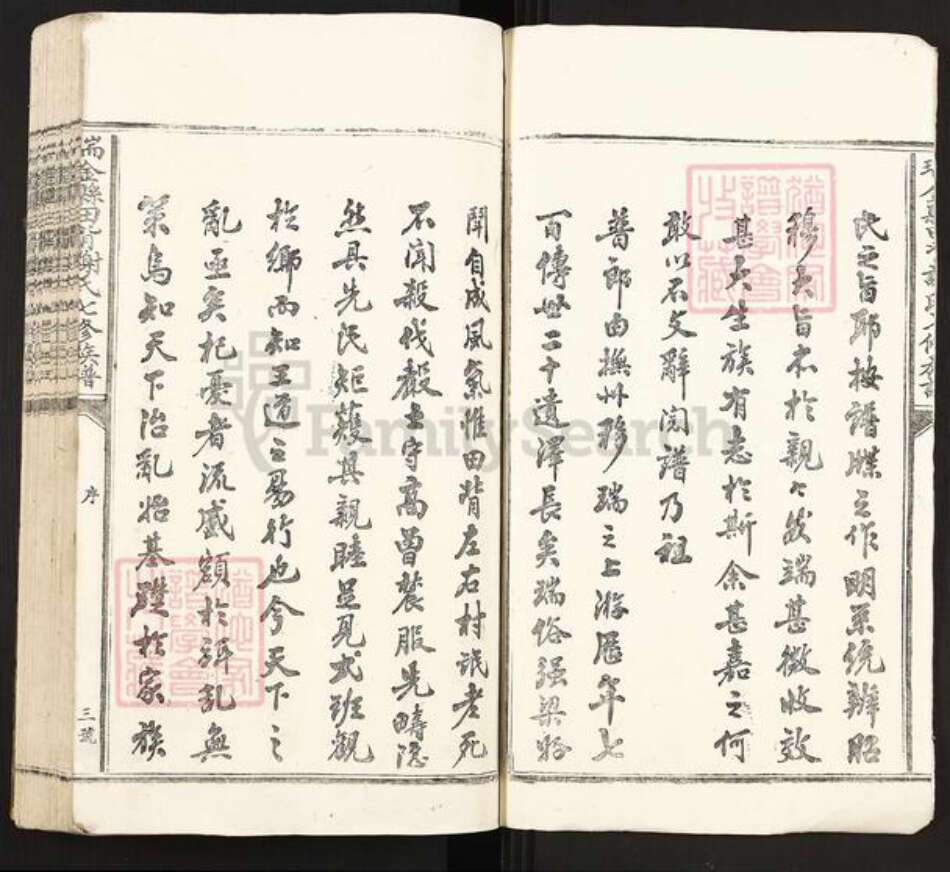 民之旨耶按譜牒之作明系統辨昭
穆大旨本於親々發端甚微收效
甚大生族有志於斯余甚嘉之何
敢以不文辭閱譜乃祖
普郎由撫州移瑞之上游歷年七
百傳世二十遺澤長矣瑞俗强梁
鬪自成風氣惟田背左右村氓老死
不聞殺伐聲士守高曾農服先疇隱
然具先民矩矱其親睦足見式班觀
於鄉而知王道之易行也今天下之
亂亟矣杞憂者流蹙額於弭亂無
策烏知天下治亂始基礎於家族
瑞金縣田背謝氏七修族譜
序
三號
FamilySearch